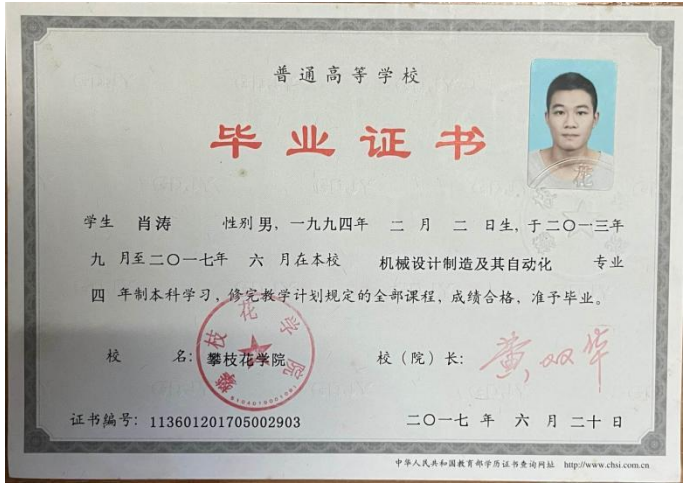 普通高等学校
毕业证书
学生 肖涛 性别 男，一九九四年 二 月 二 日生，于二〇一三年
九 月至二〇一七年 六 月在本校 机械设计制造及其自动化 专业
四 年制本科学习，修完教学计划规定的全部课程，成绩合格，准予毕业。
校 名：攀枝花学院 校（院）长：黄双华
攀枝花学院
证书编号：113601201705002903 二〇一七 年 六 月 二十 日
中华人民共和国教育部学历证书查询网址 http://www.chsi.com.cn